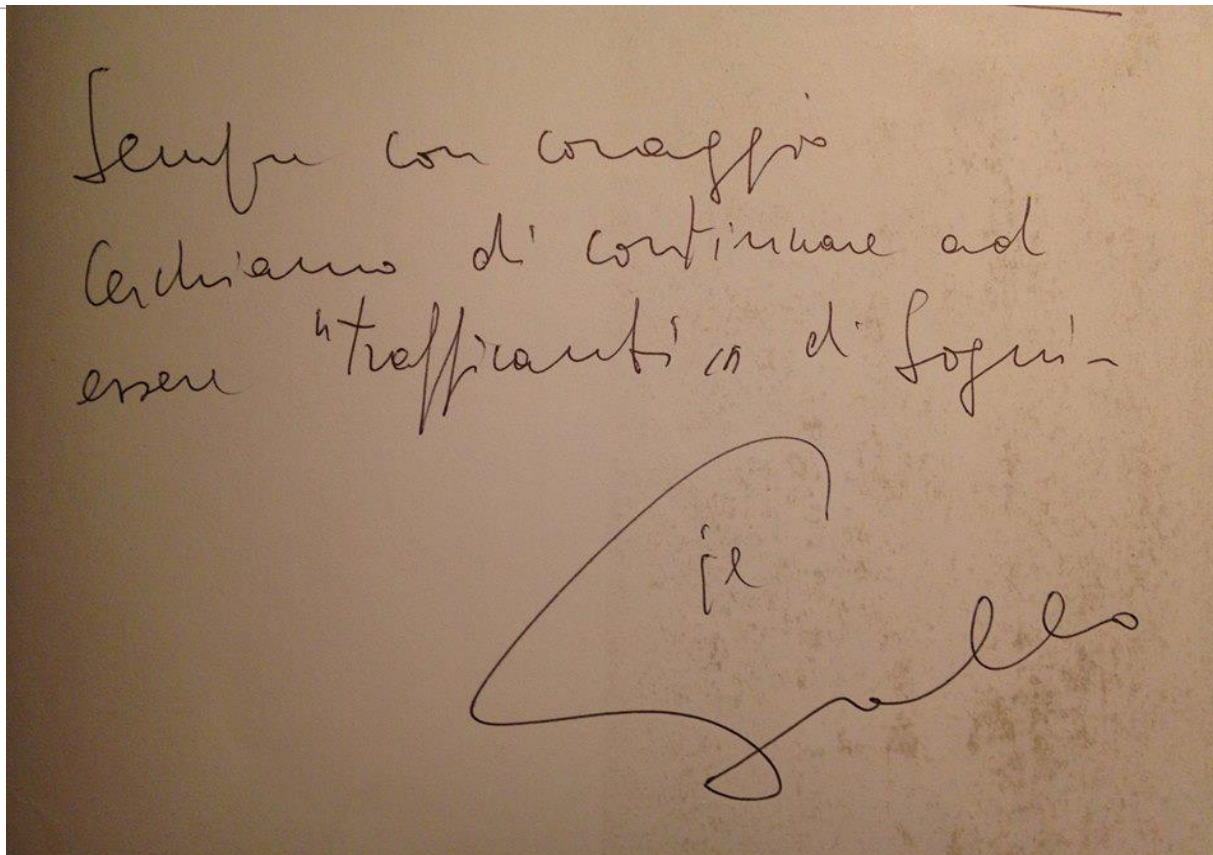 Sempre con coraggio
Cerchiamo di continuare ad
essere "trafficanti" di sogni-